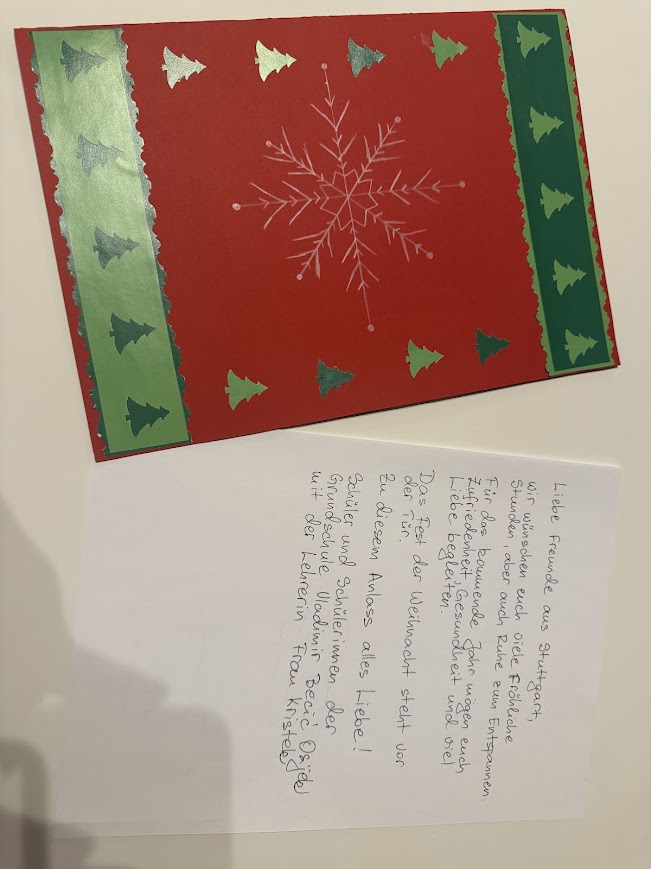 Liebe Freunde aus Stuttgart,
wir wünschen euch viele Fröhliche
Stunden, aber auch Ruhe zum Entspannen.
Für das kommende Jahr mögen euch
Zufriedenheit, Gesundheit und viel
Liebe begleiten.
Das Fest der Weihnacht steht vor
der Tür.
Zu diesem Anlass alles Liebe!
Schüler und Schülerinnen der
Grundschule Vladimir Becić Osijek
mit der Lehrerin Frau Kristek